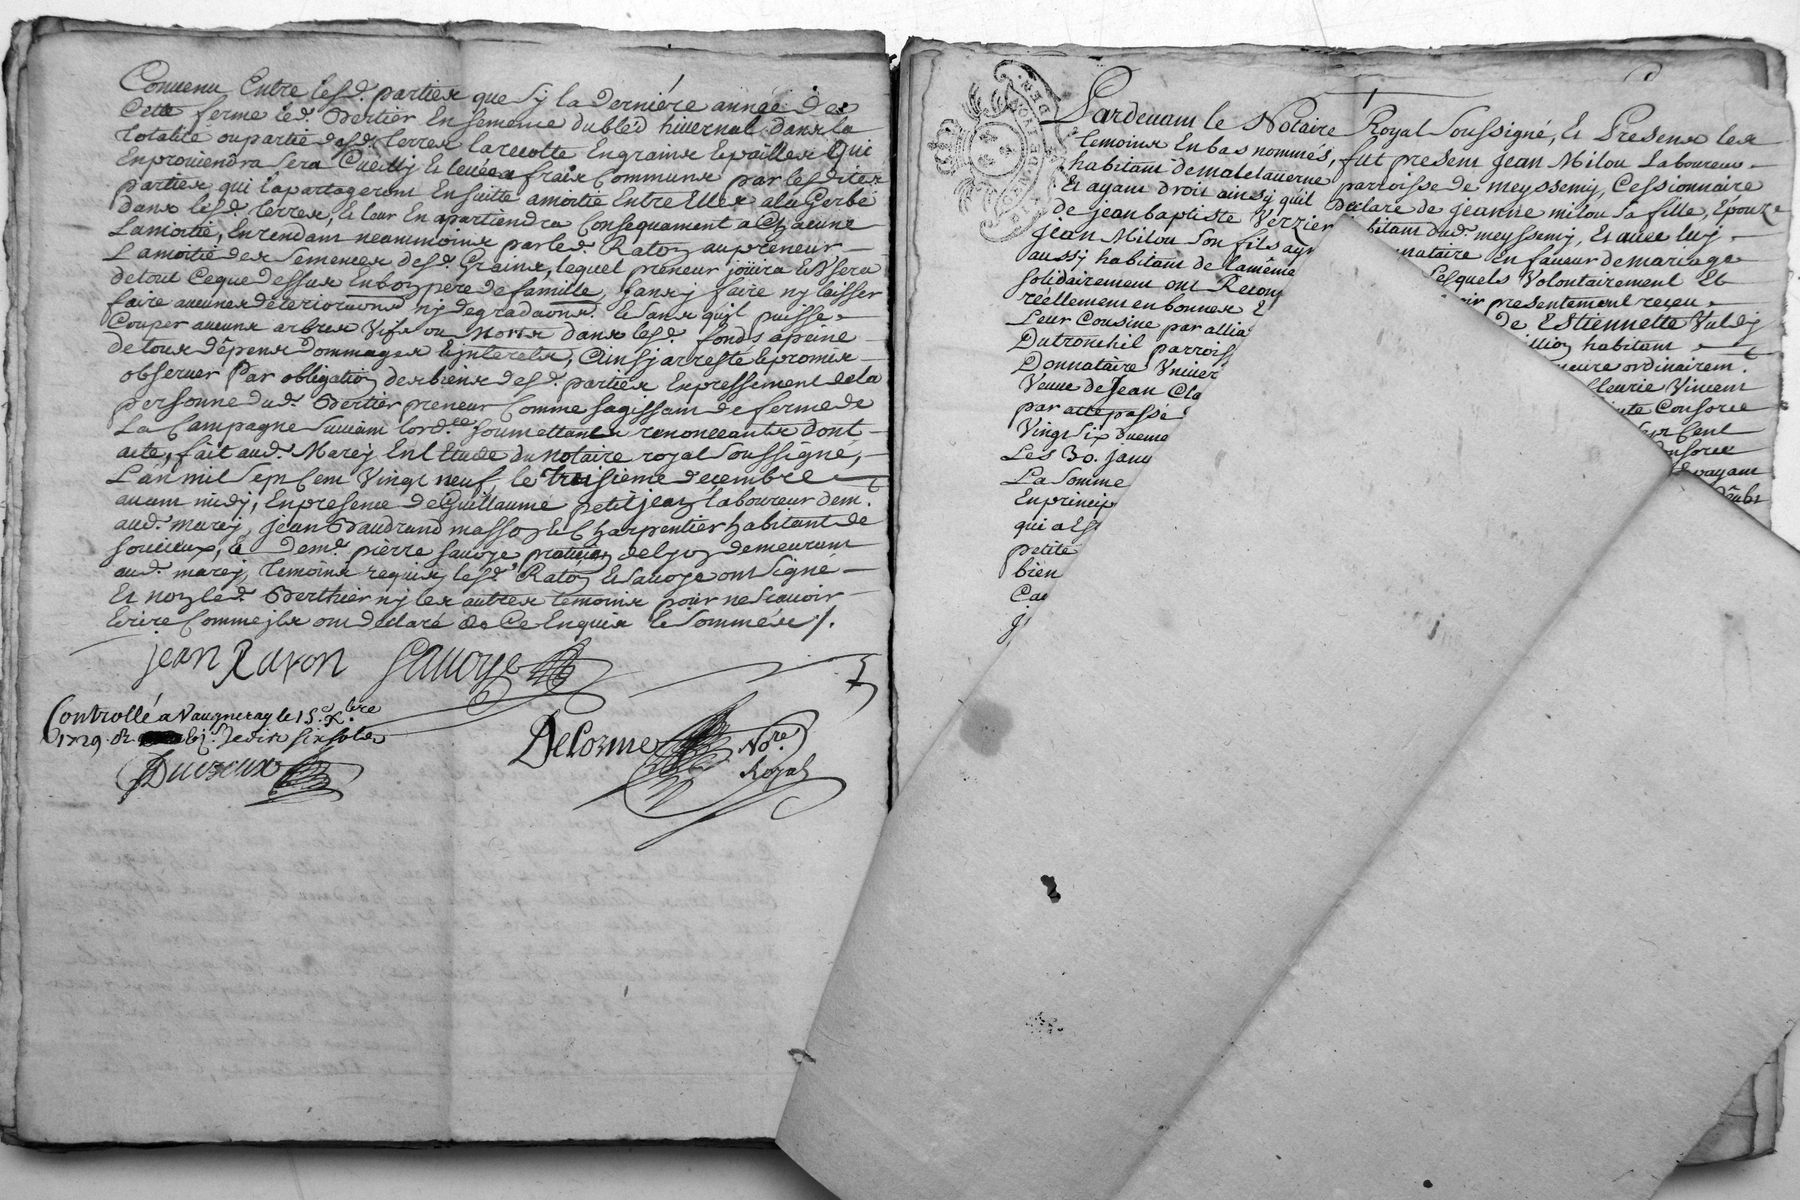 Convenu Entre lesd. parties que Sy la Derniére année de
Cette ferme led. Bertier En semence du bléd hivernal dans la
totalité ou partie desd. terres la recolte En grains Et pailles Qui
En proviendra Sera Cueilly Et levée a frais Communs par lesdites
parties qui la partageront En Suitte amoitié Entre Elles a la Gerbe
Dans lesd. terres, Et leur En apartiendra Consequament a Chacune
La moitié, En rendant neammoins par led. Raton au preneur
La moitié des Semences desd. Grains, lequel preneur joüira Et Usera
de tout Ce que dessus En bon pere de famille, Sans y faire ny laisser
faire aucunes deteriorations ny degradaons. Et Sans quil puisse
Couper aucuns arbres Vifs ou morts dans lesd. fonds a peine
de tous dépens Dommages Et interets, Ainsy arresté Et promis
observer Par obligation des biens desd. parties Expressement de la
personne dud. Bertier preneur Comme Sagissant de ferme de
La Campagne Suivant lord.ce Soumettants renonceants dont
acte, fait aud. Marcy En l Etude du notaire royal Soussigné,
L'an mil Sept Cent Vingt neuf, le troisieme decembre
avant midy, En presence de Guillaume petit jean laboureur dem.t
aud. marcy, jean Baudrand masson Et Charpentier habitant de
Soucieux, Et Dem. pierre Savoye praticien de lyon demeurant
aud. marcy, temoins requis, lesd. Raton Et Savoye ont Signé
Et non led. Berthier ny les autres temoins pour ne Scavoir
Ecrire Comme ils ont declaré de Ce Enquis Et Sommés /.
jean Raton Savoye
Controllé a Vaugneray le 15.e Xbre
1729. R. Six Sols
Delorme No.re
Royal
Pardevant le Notaire Royal Soussigné, Et Presens les
temoins En bas nommés, fut present Jean Milou Laboureur
habitant de malelaverne parroisse de meyssemy, Cessionnaire
Et ayant droit ainsy qu'il Declare de jeanne milou Sa fille, Epouze
de jean baptiste Verzier habitant dud. meyssemy, Et avec luy
Jean Milou Son fils En faveur de mariage
aussy habitant de la même Lesquels Volontairement Et
Solidairement ont presentement receu
réellement en bonnes de Estiennette
Leur Cousine par allia habitant
Dutronchil parrois ordinairem.t
Donnataire Vincent
Veuve de Jean Cla Consorce
par acte passé Cent
Vingt Six
Les 30. janv
La Somme
En princip
qui a
petite
bien